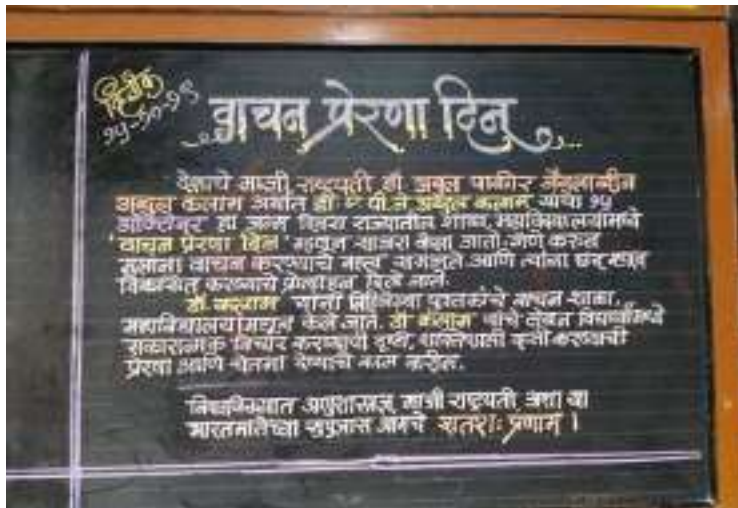 दिनांक
१५-१०-१९
वाचन प्रेरणा दिन
देशाचे माजी राष्ट्रपती डॉ अबुल पाकीर जैनुलाब्दीन
अब्दुल कलाम अर्थात डॉ ए पी जे अब्दुल कलाम यांचा १५
ऑक्टोंबर हा जन्म दिवस राज्यातील शाळा, महाविद्यालयामध्ये
'वाचन प्रेरणा दिन' म्हणून साजरा केला जातो.
वाचन करण्याचे महत्व आणि त्यांना
विकसित करण्याचे प्रोत्साहन दिले जाते.
डॉ. कलाम यांनी पुस्तकांचे वाचन शाळा,
महाविद्यालयांमधून केले जाते. डॉ कलाम यांचे लेखन विद्यार्थ्यांमध्ये
सकारात्मक विचार करण्याची कृती करण्याची
प्रेरणा आणि चेतना देण्याचे काम करील.
अणुशास्त्रज्ञ, माजी राष्ट्रपती, अशा या
भारतमातेच्या सुपुत्रास आमचे शतशः प्रणाम ।